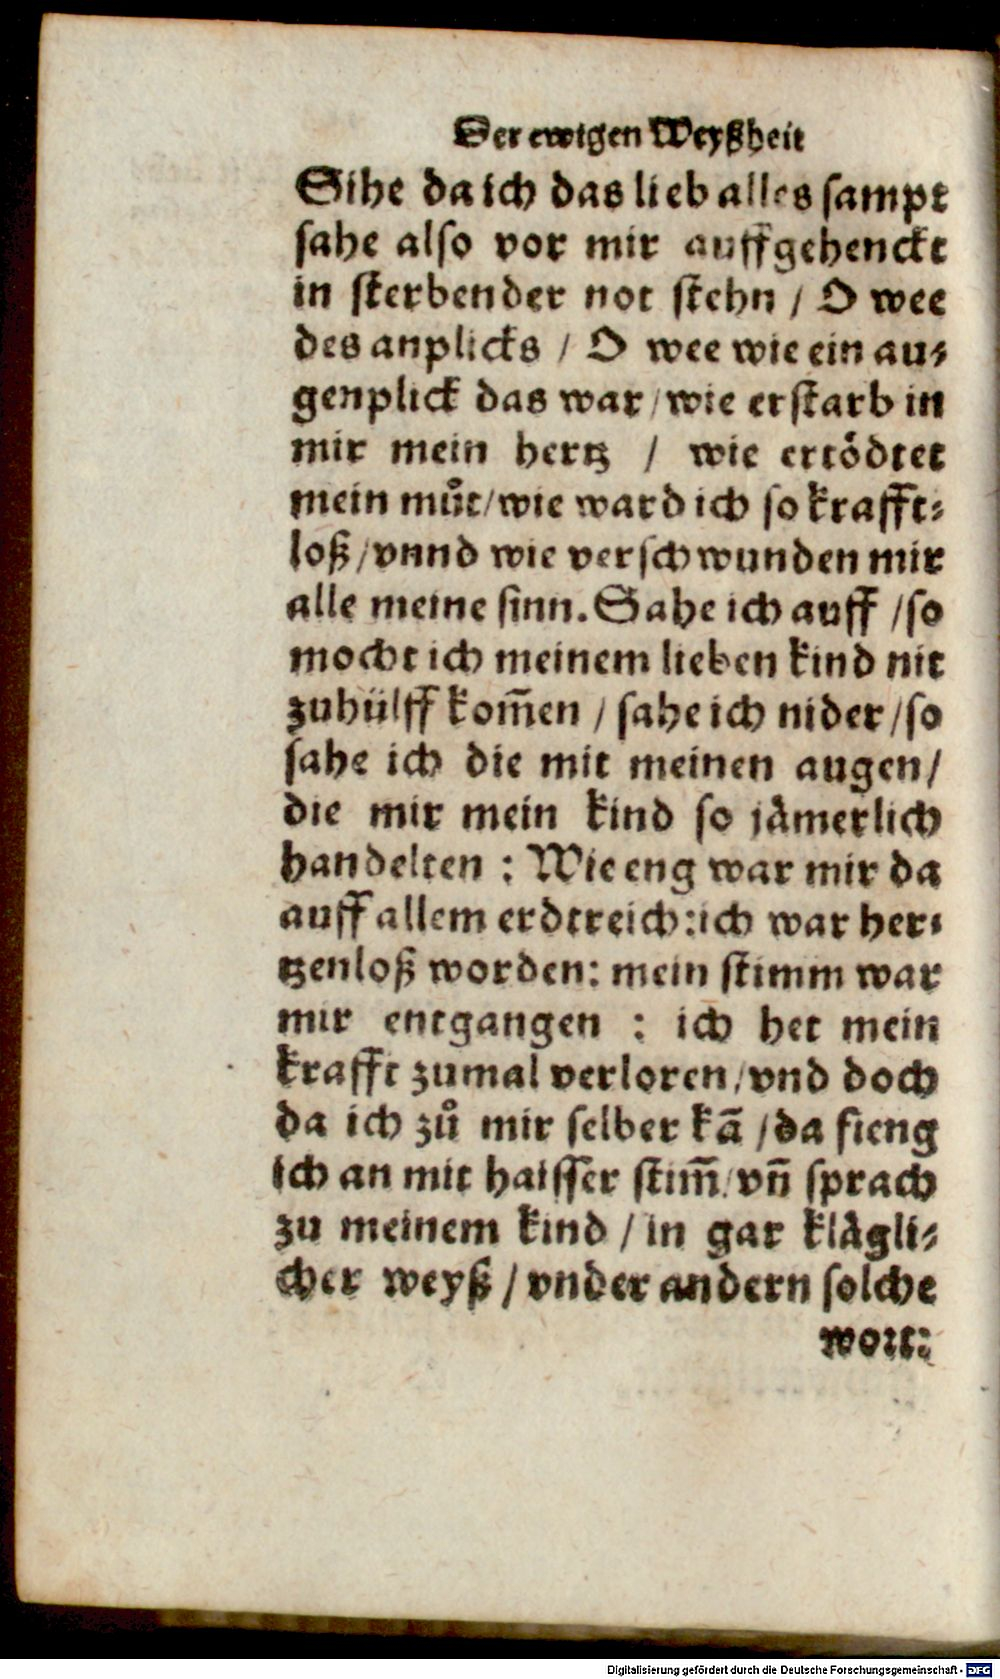 Der ewigen Weyßheit
Sihe da ich das lieb alles sampt
sahe also vor mir auffgehenckt
in sterbender not stehn / O wee
des anplicks / O wee wie ein au⸗
genplick das war / wie erstarb in
mir mein hertz / wie ertödtet
mein můt / wie ward ich so krafft⸗
loß / vnnd wie verschwunden mir
alle meine sinn. Sahe ich auff / so
mocht ich meinem lieben kind nit
zuhülff kom̃en / sahe ich nider / so
sahe ich die mit meinen augen /
die mir mein kind so jämerlich
handelten : Wie eng war mir da
auff allem erdtreich: ich war her⸗
tzenloß worden: mein stimm war
mir entgangen : ich het mein
krafft zumal verloren / vnd doch
da ich zů mir selber kã / da fieng
ich an mit haisser stim̃ / vñ sprach
zu meinem kind / in gar klägli⸗
cher weyß / vnder andern solche
wort:
Digitalisierung gefördert durch die Deutsche Forschungsgemeinschaft - DFG